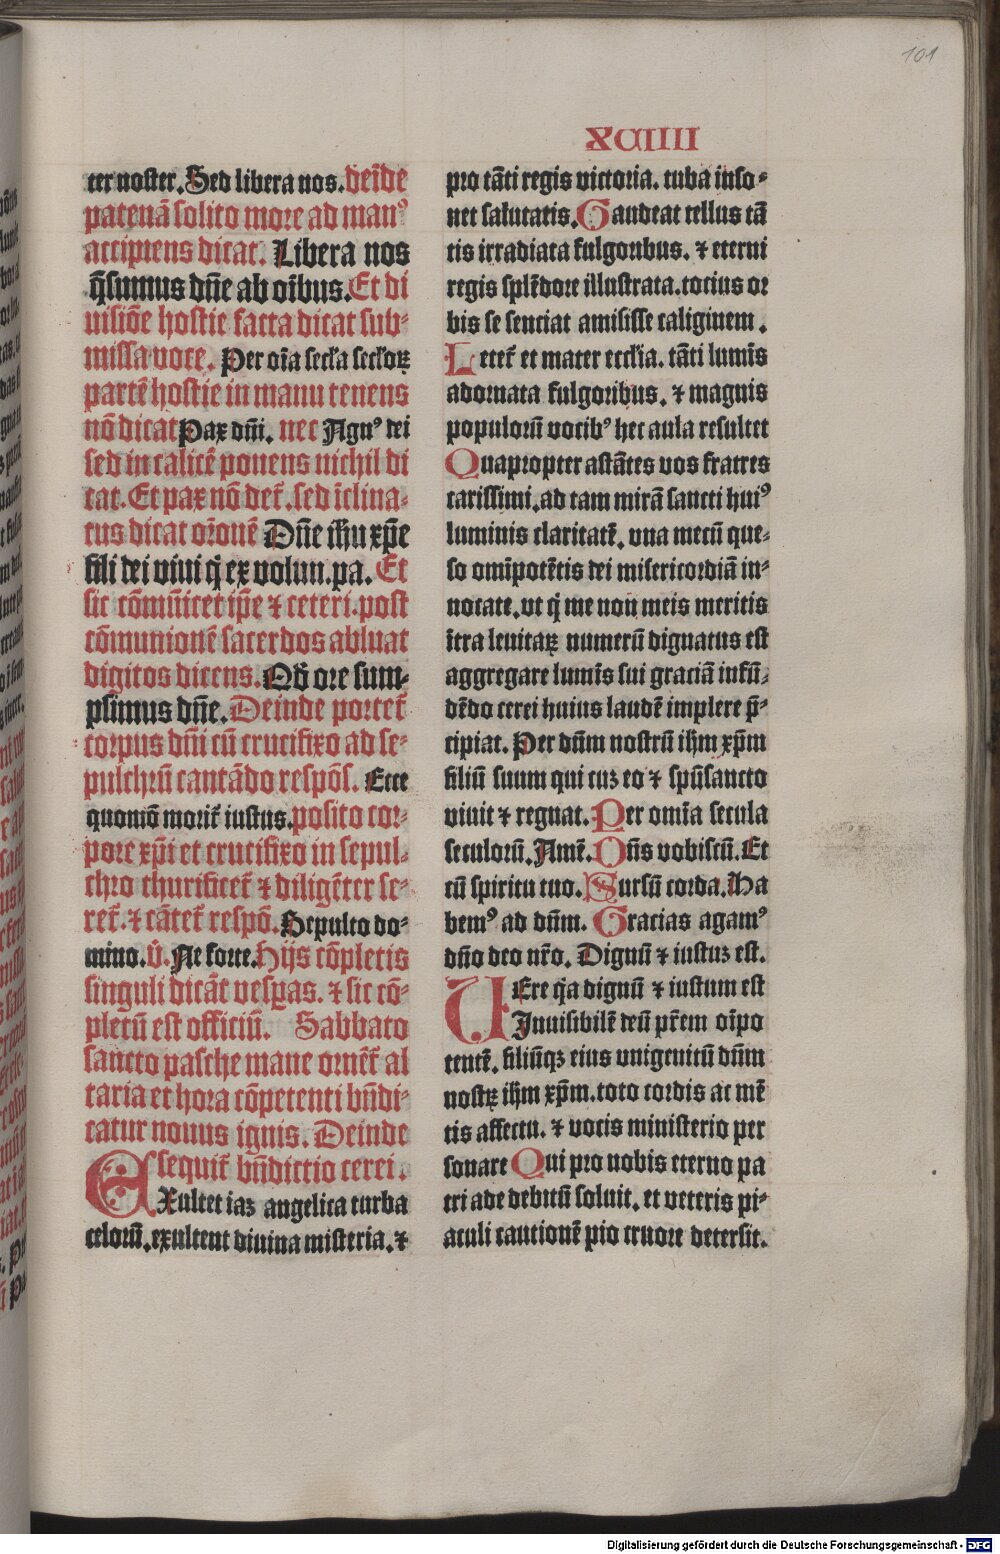 101
XCIIII
ter noster. Sed libera nos. deīde
patenā solito more ad manꝰ
accipiens dicat. Libera nos
q̄sumus dn̄e ab oībus. Et di
uisiōe hostie facta dicat sub-
missa voce. Per oīa secła secłoꝝ
partē hostie in manu tenens
nō dicat Pax dn̄i. nec Agnꝰ dei
sed in calicē ponens nichil di
cat. Et pax nō det̄. sed īclina-
tus dicat orōnē Dn̄e ih̄u xp̄e
fili dei viui q̄ ex volun. pa. Et
sic cōmūicet ip̄e ⁊ ceteri. post
cōmunionē sacerdos abluat
digitos dicens. Qḋ ore sum-
psimus dn̄e. Deinde portet̄
corpus dn̄i cū crucifixo ad se-
pulchrū cantādo respōs. Ecce
quomō morit̄ iustus. posito cor-
pore xp̄i et crucifixo in sepul-
chro thurificet̄ ⁊ diligēter se-
ret̄. ⁊ cātet̄ respō. Sepulto do-
mino. v̄. Ne forte. Hijs cōpletis
singuli dicāt vesꝑas. ⁊ sic cō-
pletū est officiū. Sabbato
sancto pasche mane ornēt̄ al
taria et hora cōpetenti bn̄di-
catur nouus ignis. Deinde
sequit̄ bn̄dictio cerei.
EXultet iaꝫ angelica turba
celorū. exultent diuina misteria. ⁊
pro tāti regis victoria. tuba inso-
net salutatis. Gaudeat tellus tā
tis irradiata fulgoribus. ⁊ eterni
regis splēdore illustrata. totius or
bis se senciat amisisse caliginem.
Letet̄ et mater ecclīa. tāti lumīs
adornata fulgoribus. ⁊ magnis
populorū vocibꝰ hec aula resultet
Quapropter astātes vos fratres
carissimi. ad tam mirā sancti huiꝰ
luminis claritatē. vna mecū que-
so omīpotētis dei misericordiā in-
uocate. vt q̄ me non meis meritis
ītra leuitaꝝ numerū dignatus est
aggregare lumīs sui graciā infū-
dēdo cerei huius laudē implere p̄-
cipiat. Per dn̄m nostrū ih̄m xp̄m
filiū suum qui cuꝫ eo ⁊ spūsancto
viuit ⁊ regnat. Per omīa secula
seculorū. Amē. Dn̄s vobiscū. Et
cū spiritu tuo. Sursū corda. Ha
bemꝰ ad dn̄m. Gracias agamꝰ
dn̄o deo nr̄o. Dignū ⁊ iustuꝫ est.
VEre q̄a dignū ⁊ iustum est
Inuisibilē deū pr̄em oīpo
tentē. filiūqꝫ eius vnigenitū dn̄m
nostꝝ ih̄m xp̄m. toto cordis ac mē
tis affectu. ⁊ vocis ministerio per
sonare Qui pro nobis eterno pa
tri ade debitū soluit. et veteris pi-
aculi cautionē pio cruore detersit.
Digitalisierung gefördert durch die Deutsche Forschungsgemeinschaft - DFG